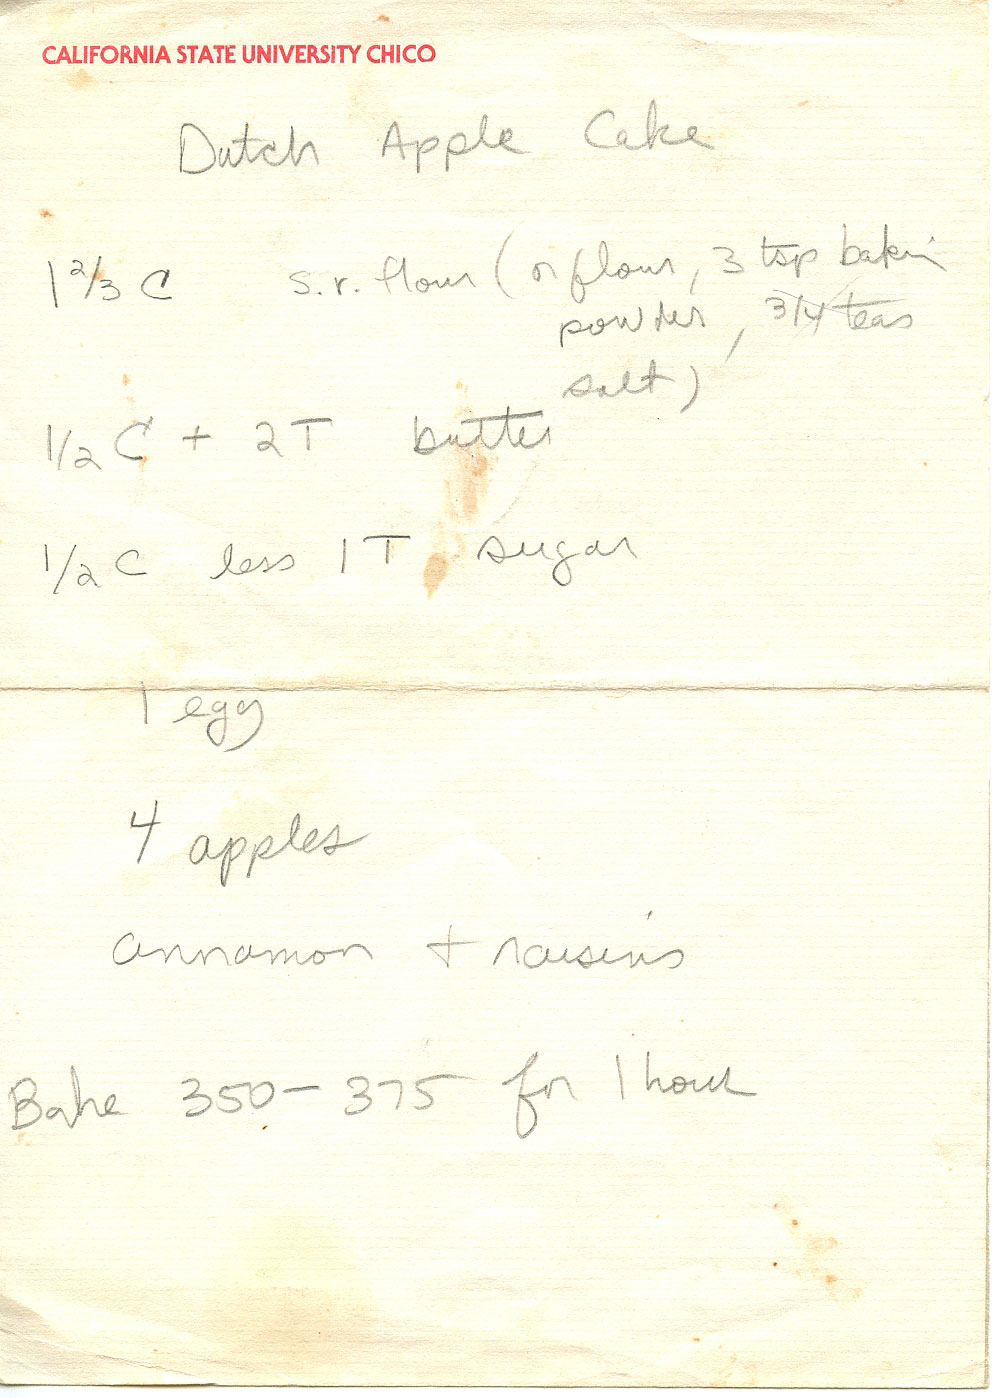 CALIFORNIA STATE UNIVERSITY CHICO
Dutch Apple Cake
1 2/3 C s.r. flour (or flour, 3 tsp bakin
powder, 3/4 teas
salt)
1/2 C + 2T butter
1/2 C less 1 T sugar
1 egg
4 apples
cinnamon + raisins
Bake 350-375 for 1 hour